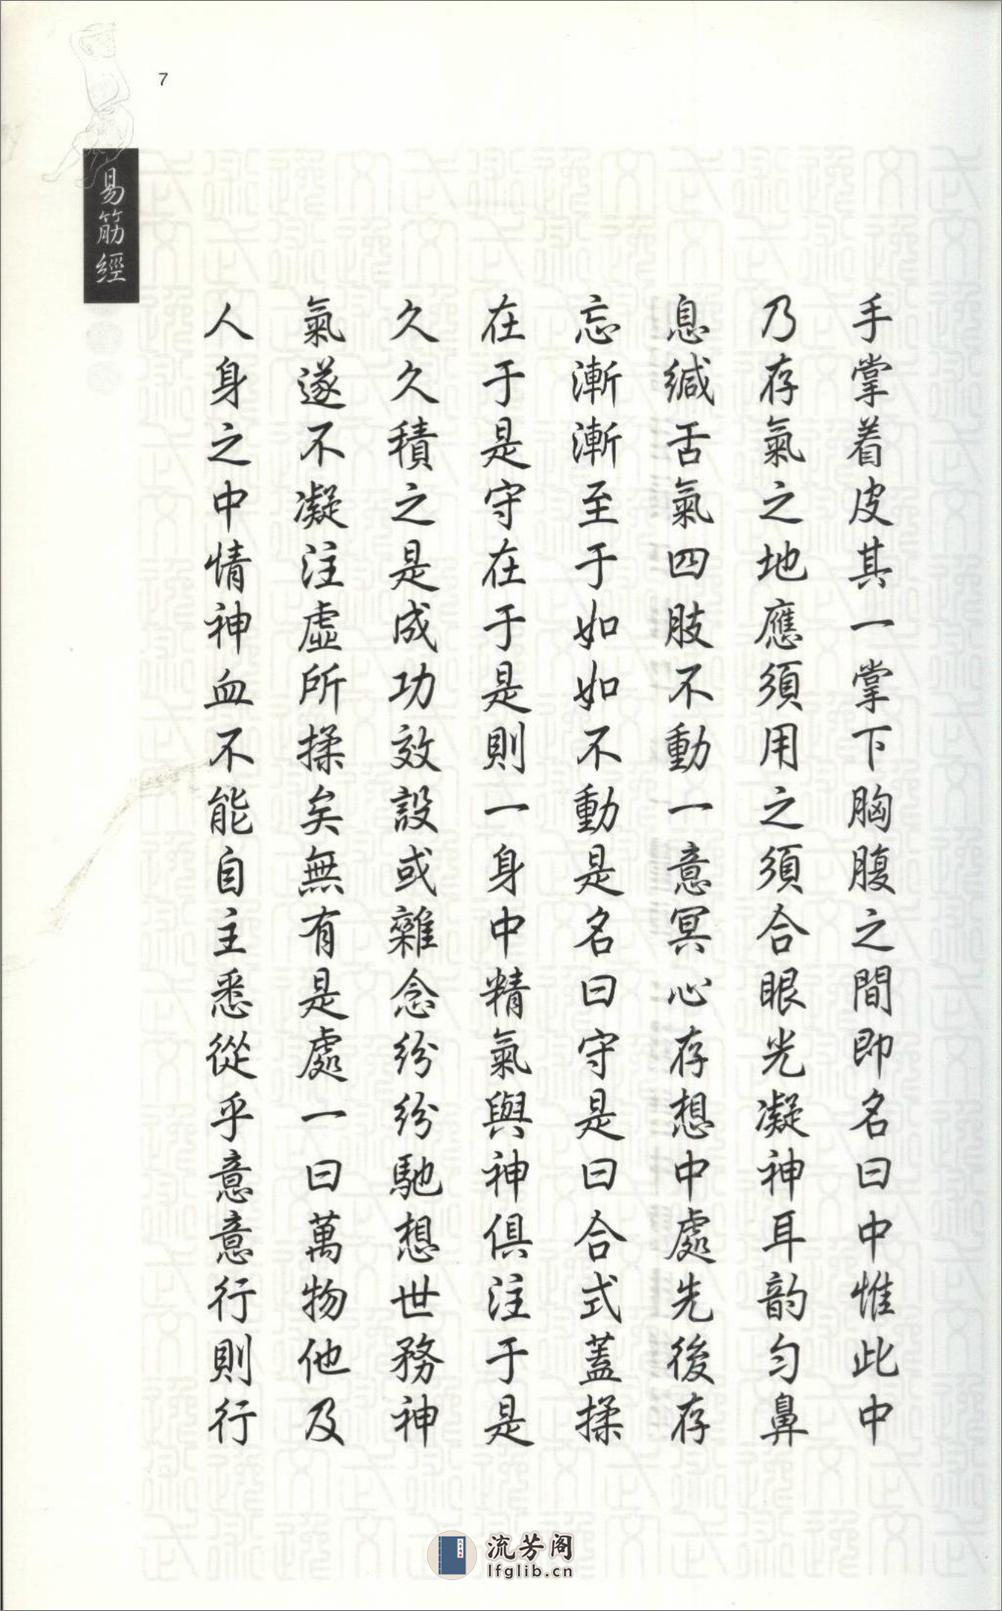 7
易筋經
手掌着皮其一掌下胸腹之間即名曰中惟此中
乃存氣之地應須用之須合眼光凝神耳韵勻鼻
息緘舌氣四肢不動一意冥心存想中處先後存
忘漸漸至于如如不動是名曰守是曰合式蓋揉
在于是守在于是則一身中精氣與神俱注于是
久久積之是成功效設或雜念紛紛馳想世務神
氣遂不凝注虛所揉矣無有是處一曰萬物他及
人身之中情神血不能自主悉從乎意意行則行
流芳阁
lfglib.cn